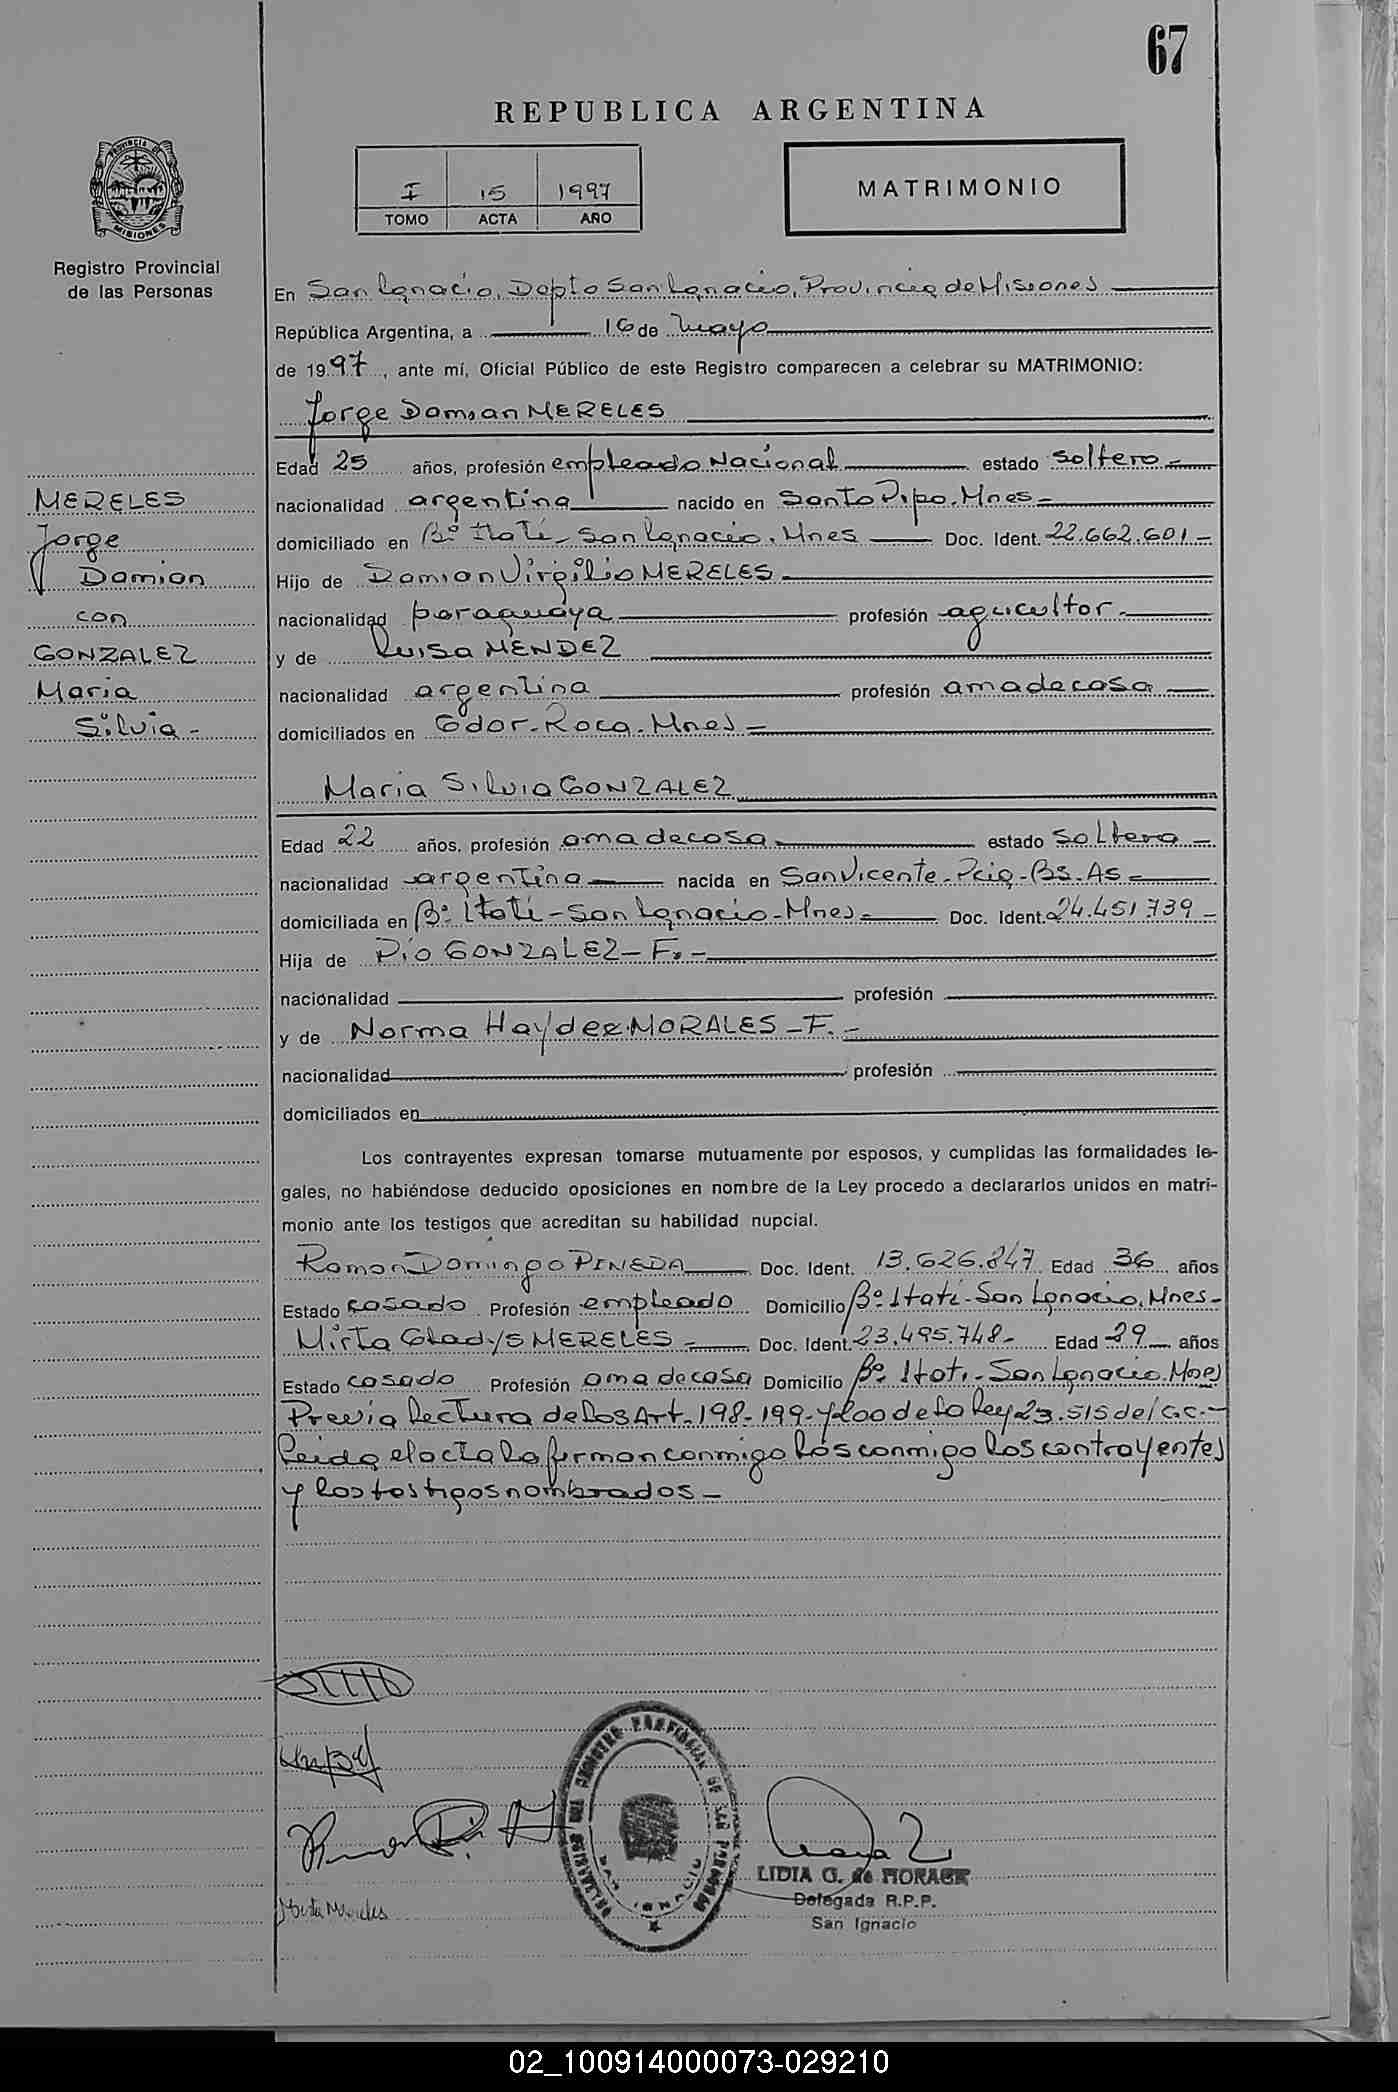 67
REPUBLICA ARGENTINA
I 15 1997
TOMO ACTA AÑO
MATRIMONIO
PROVINCIA DE MISIONES
Registro Provincial
de las Personas
MERELES
Jorge
Damian
con
GONZALEZ
Maria
Silvia -
En San Ignacio, Dpto San Ignacio, Provincia de Misiones
República Argentina, a 16 de Mayo
de 1997, ante mí, Oficial Público de este Registro comparecen a celebrar su MATRIMONIO:
Jorge Damian MERELES
Edad 25 años, profesión empleado Nacional estado soltero -
nacionalidad argentina nacido en Santo Pipo. Mnes -
domiciliado en Bº Itatí - San Ignacio. Mnes Doc. Ident. 22.662.601 -
Hijo de Damian Virgilio MERELES
nacionalidad paraguaya profesión agricultor -
y de Luisa MENDEZ
nacionalidad argentina profesión ama de casa
domiciliados en Gdor. Roca. Mnes -
Maria Silvia GONZALEZ
Edad 22 años, profesión ama de casa estado soltera -
nacionalidad argentina nacida en San Vicente - Pcia - Bs. As -
domiciliada en Bº Itatí - San Ignacio - Mnes - Doc. Ident. 24.451.739 -
Hija de Pio GONZALEZ - F. -
nacionalidad profesión
y de Norma Haydee MORALES - F. -
nacionalidad profesión
domiciliados en
Los contrayentes expresan tomarse mutuamente por esposos, y cumplidas las formalidades le-
gales, no habiéndose deducido oposiciones en nombre de la Ley procedo a declararlos unidos en matri-
monio ante los testigos que acreditan su habilidad nupcial.
Ramon Domingo PINEDA Doc. Ident. 13.626.847 Edad 36 años
Estado casado Profesión empleado Domicilio Bº Itatí - San Ignacio, Mnes -
Mirta Gladys MERELES - Doc. Ident. 23.495.748 - Edad 29 años
Estado casado Profesión ama de casa Domicilio Bº Itati - San Ignacio. Mnes
Previa lectura de los Art. 198 - 199 - y 200 de la ley 23.515 del C.C. -
Leida el acta la firman conmigo los conmigo los contrayentes
y los testigos nombrados -
Mirta Mereles
LIDIA G. de MORAGE
Delegada R.P.P.
San Ignacio
02_100914000073-029210